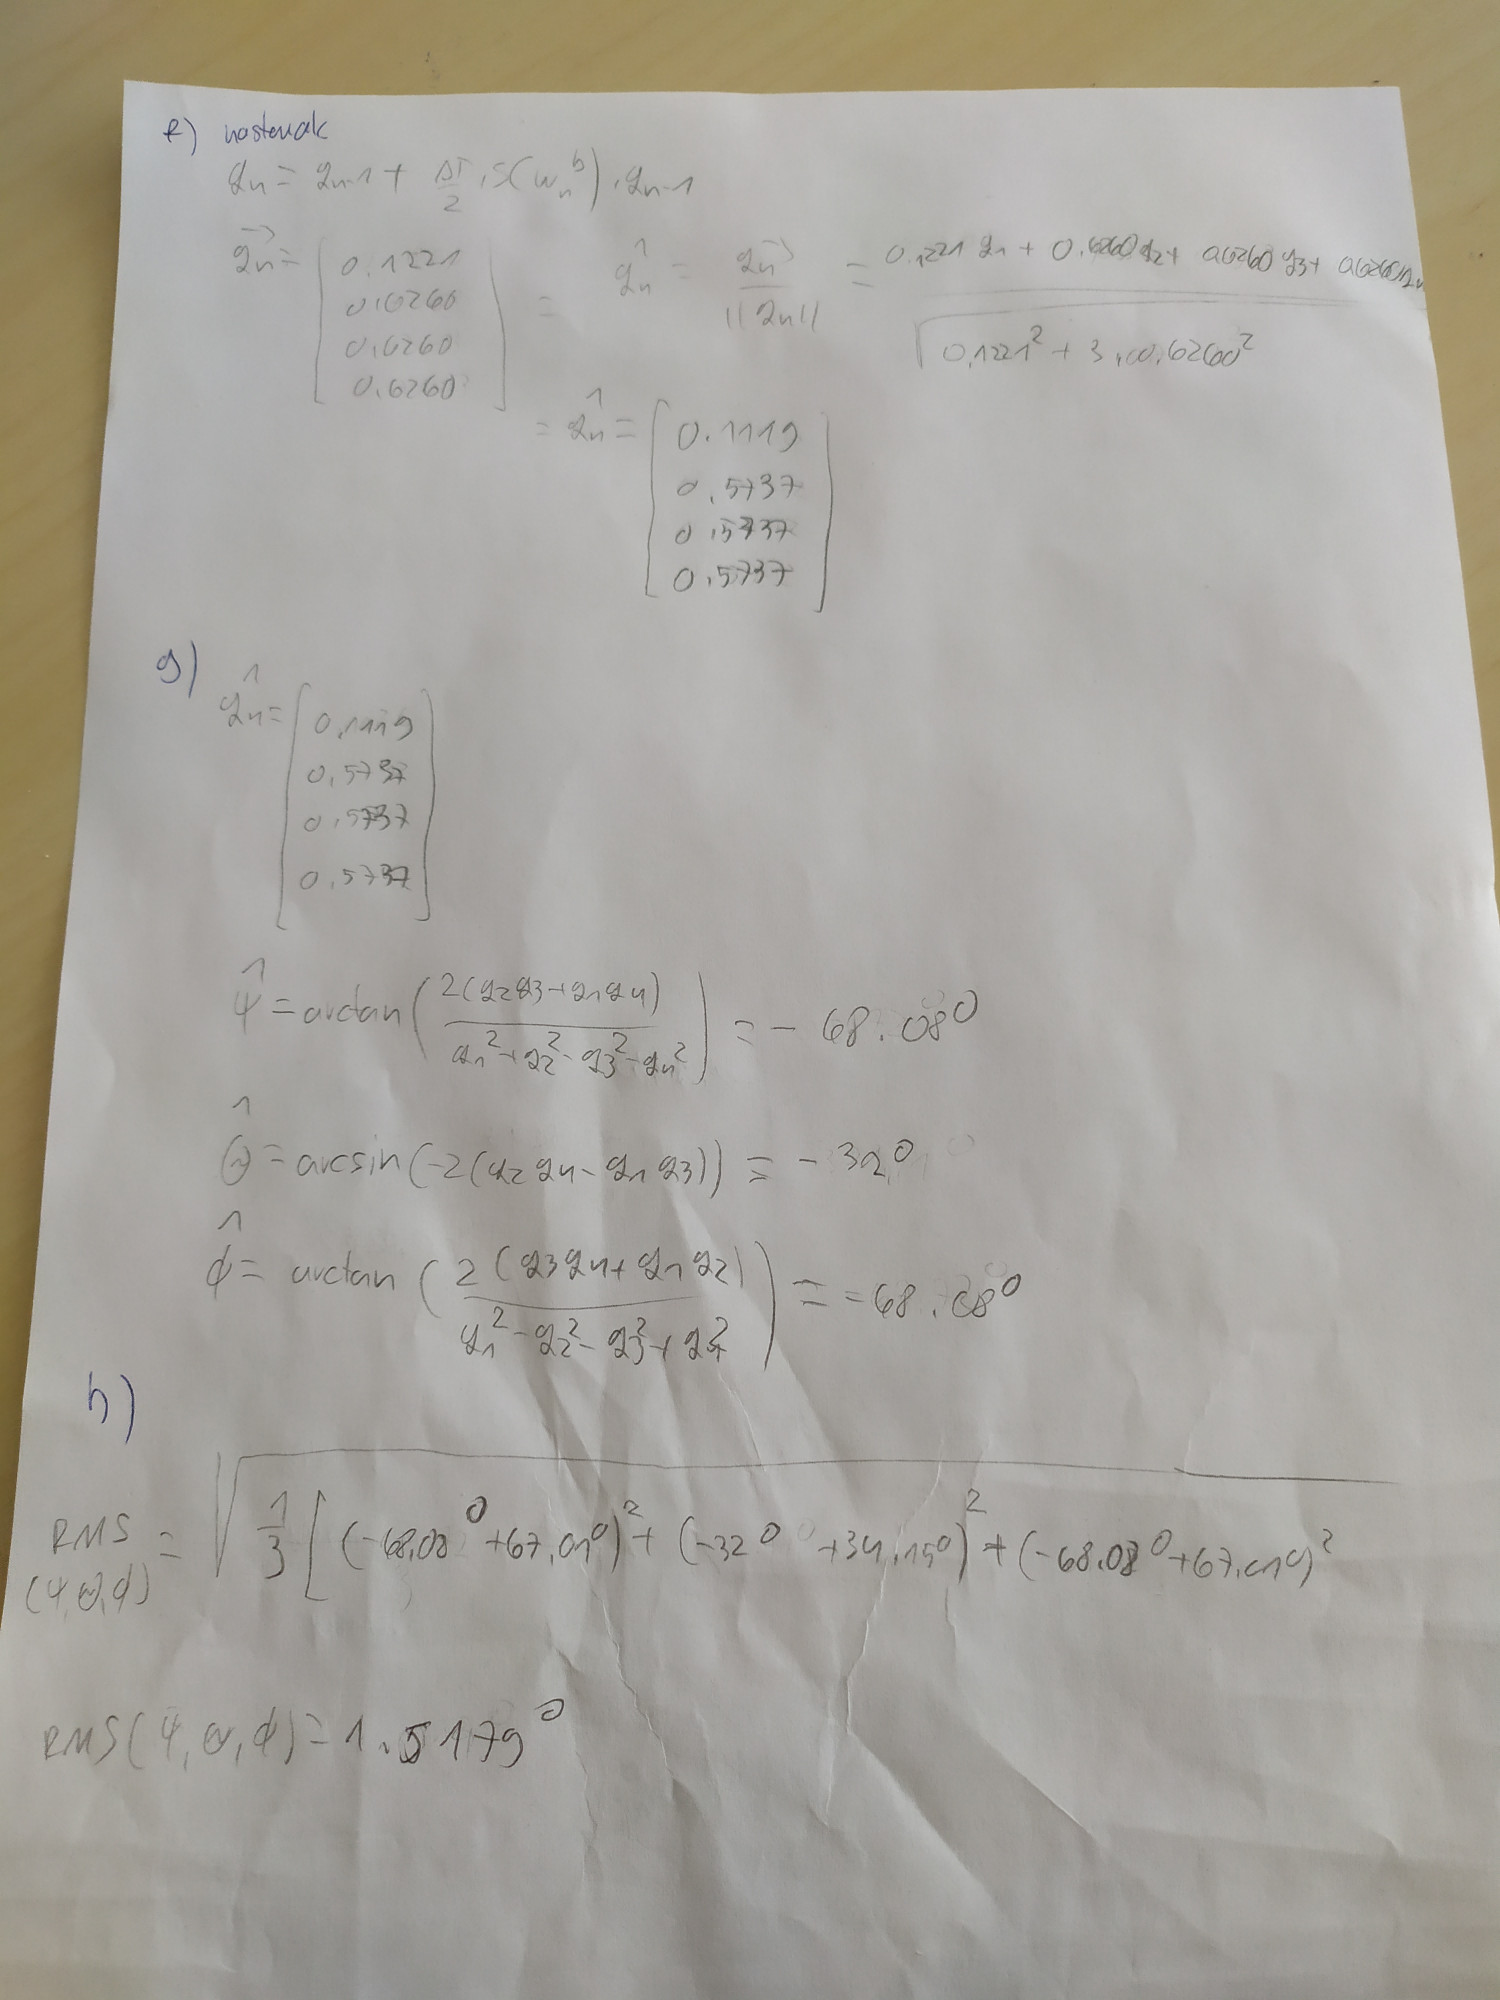 f) nastavak
q_n = q_n-1 + ΔT/2 · S(w_n^b) · q_n-1
q_n = [0.1221 0.6260 0.6260 0.6260] = q̂_n = q_n/||q_n|| = (0.1221 q_1 + 0.6260 q_2 + 0.6260 q_3 + 0.6260 q_4)/√(0.1221² + 3 · 0.6260²)
= q̂_n = [0.1119 0.5737 0.5737 0.5737]
g)
q̂_n = [0.1119 0.5737 0.5737 0.5737]
ψ̂ = arctan(2(q_2q_3+q_1q_4)/(q_1²+q_2²-q_3²-q_4²)) = -68.08°
θ̂ = arcsin(-2(q_2q_4-q_1q_3)) = -32°
ϕ̂ = arctan(2(q_3q_4+q_1q_2)/(q_1²-q_2²-q_3²+q_4²)) = -68.08°
h)
RMS(ψ,θ,ϕ) = √(1/3[(-68.08°+67.01°)²+(-32°+34.15°)²+(-68.08°+67.01°)²
RMS(ψ,θ,ϕ) = 1.5179°